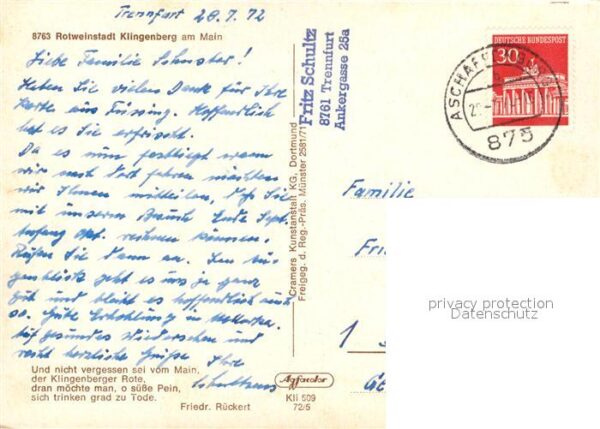 Trennfurt 28.7.72
8763 Rotweinstadt Klingenberg am Main
Liebe Familie
Haben Sie vielen Dank für Ihre
Karte aus Füssing. Hoffentlich
hat es Sie erfrischt.
Da es nun festliegt wann
wir nach dort fahren möchten
wir Ihnen mitteilen, daß Sie
mit unserem Besuch Ende Sept.
Anfang Okt. rechnen können.
Rufen Sie dann an. Im Au-
genblick geht es uns ja ganz
gut und bleibt es hoffentlich auch
so. Gute Erholung in
Auf gesundes Wiedersehen und
recht herzliche Grüße Ihre
Und nicht vergessen sei vom Main,
der Klingenberger Rote,
dran möchte man, o süße Pein,
sich trinken grad zu Tode.
Friedr. Rückert
Cramers Kunstanstalt KG, Dortmund
Freigeg. d. Reg.-Präs. Münster 2581/71
Fritz Schultz
8761 Trennfurt
Ankergasse 25a
DEUTSCHE BUNDESPOST
30
ASCHAFF
875
Familie
Fri
1
privacy protection
Datenschutz
Agfacolor
Kli 509
72/5